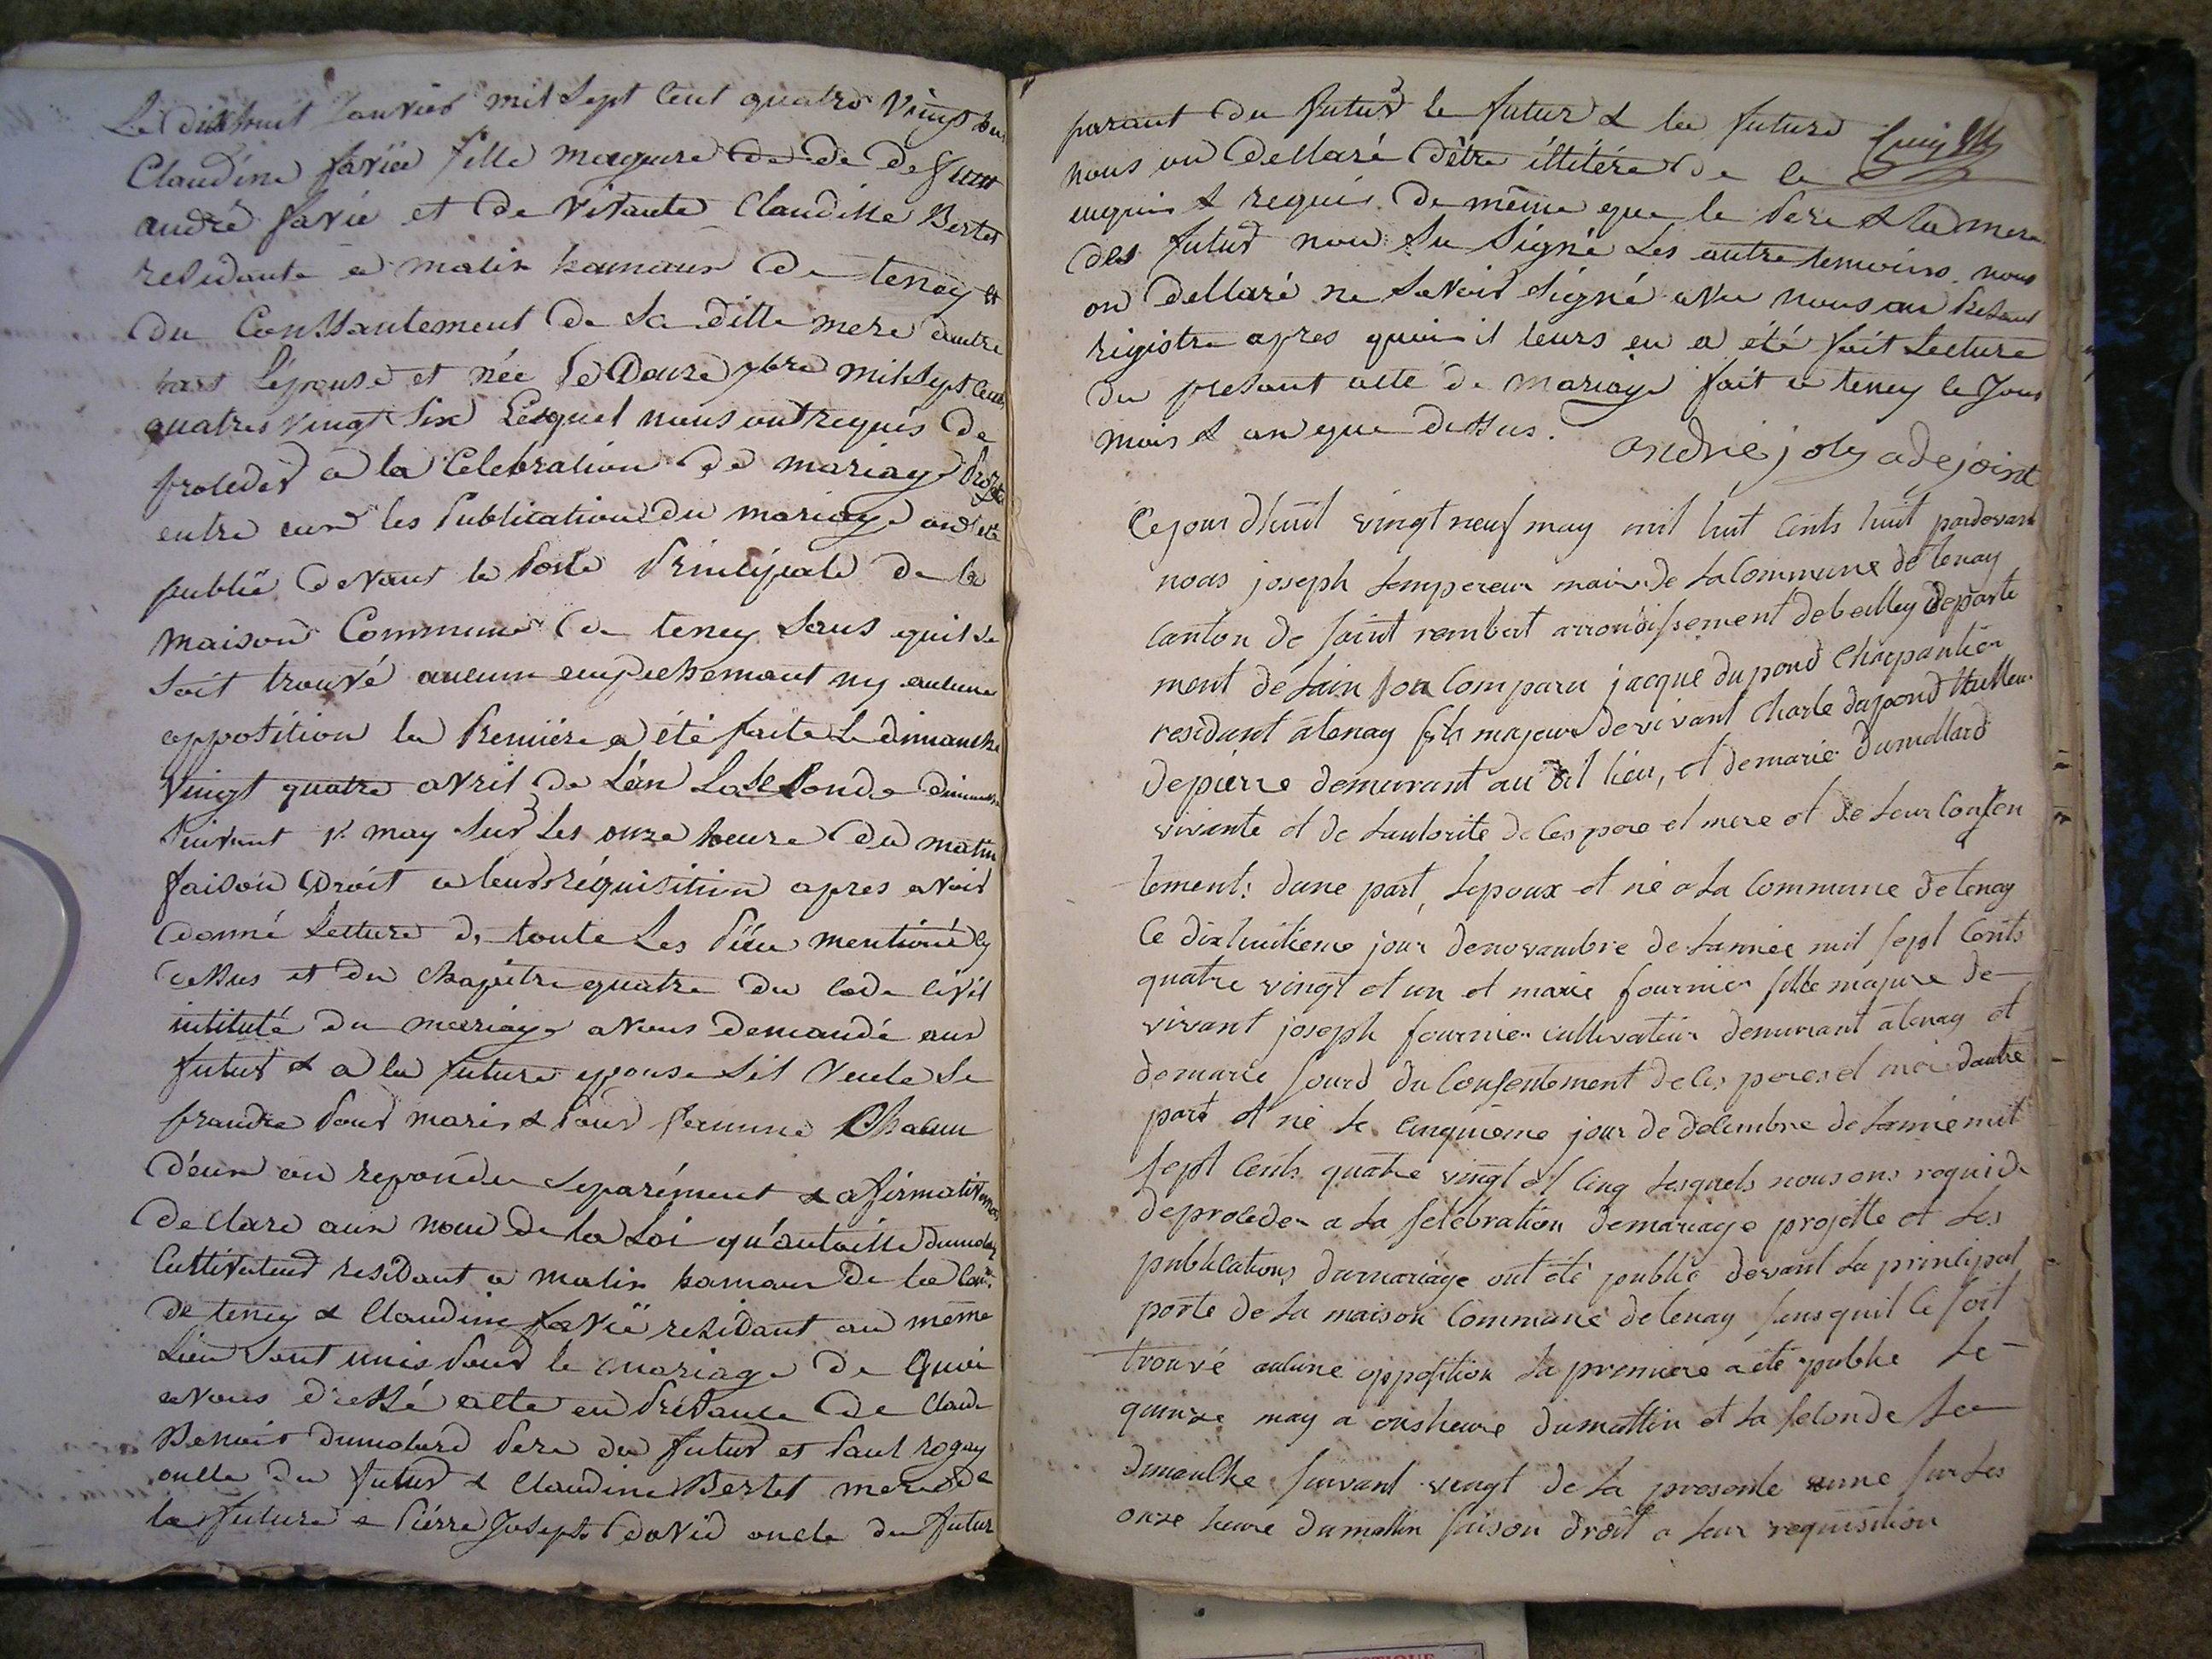 Le dixhuit Janvier mil Sept Cent quatre Vingt
Claudine favier fille mageure de de defunt
andré favie et de vivante Claudine Bertet
residante a malix hamaux de tenay et
du Conssantement de Sa ditte mere dautre
part Lépouse et née le Douze 7bre mil Sept Cent
quatres vingt Six Lesquel nous ont requis de
proceder a la Celebration de mariage
entre eux les Publication du mariage on eté
publié devant la Porte Principale de la
maison Commune de teney Sans quil Se
soit trouvé aucun empechemant ny aucune
oppotition la Premiere a été faite Le dimanche
vingt quatre avril de L'an La Seconde dimanche
Suivant 1r may Sur Les onze heure du matin
faison Droit a leurs réquisition apres avoir
donné Lecture de toute Les Piece mentioné cy
dessus et du Chapitre quatre du Code Civil
intitulé du mariage avons demandé aux
futur & a la future epouse Sil Veule Se
prandre Pour maris & Pour famme Chacun
d'eux on repondu Separément & afirmativemen
declare aux nom de la Loi qu'antoille dumolard
Cultivateur residant a malix hamaux de la Com.
de teney & Claudine favié residant au méme
Lieu Sont unis Pour le mariage de Quoi
avons dressé acte en Présance de Claude
Benoit dumolard Pere du futur et Paul rogay
oncle du futur & Claudine Bertet mere de
la future & Piérre Joseph David oncle du futur
parant du futur le futur & la future
nous on dellaré dêtre illitére de ce
enquis & requis de même que le Pere & la mere
des futur non Su Signé Les autre temoins nous
on dellaré ne Savoir Signé avec nous au Présant
rigistre apres quoi il leurs en a été fait Lecture
du présant acte de mariage fait a teney le Jour
mois & an que dessus.
andrie joly adejoint
Ce jour dhuit vingt neuf may mil huit Cents huit pardevant
nous joseph Lempereur maire de La Commune de tenay
Canton de saint rembert arrondissement de belley Departe
ment de Lain son Comparu jacque dupond Charpantier
residant a tenay fils majeur de vivant Charle dupond tallieur
de pierre demeurant au dit lieu, et de marie Dumollard
vivante et de Lautorite de Ces pere et mere et de Leur Consen
tement: dune part, Lepoux et né a La Commune de tenay
Le dixhuitieme jour de novambre de Lannée mil sept Cents
quatre vingt et un et marie fournier fille majure de
vivant joseph fournier cultivateur demeurant a tenay et
de marie sourd du Consentement de Ces peres et mere dautre
part et né Le Cinquieme jour de dessembre de Lannée mil
sept Cents quatre vingt et Cinq Lesquels nous ons requi de
de proceder a La selebration de mariage projette et Les
publications du mariage ont été publié devant La principal
porte de La maison Commune de tenay sans quil Ce soit
trouvé aucune opposition La premiere a été publie Le
quinze may a ons heure du mattin et La seconde Le
dimanche suivant vingt de La presente anne sur Les
onze heure du mattin faison droit a Leur requisition